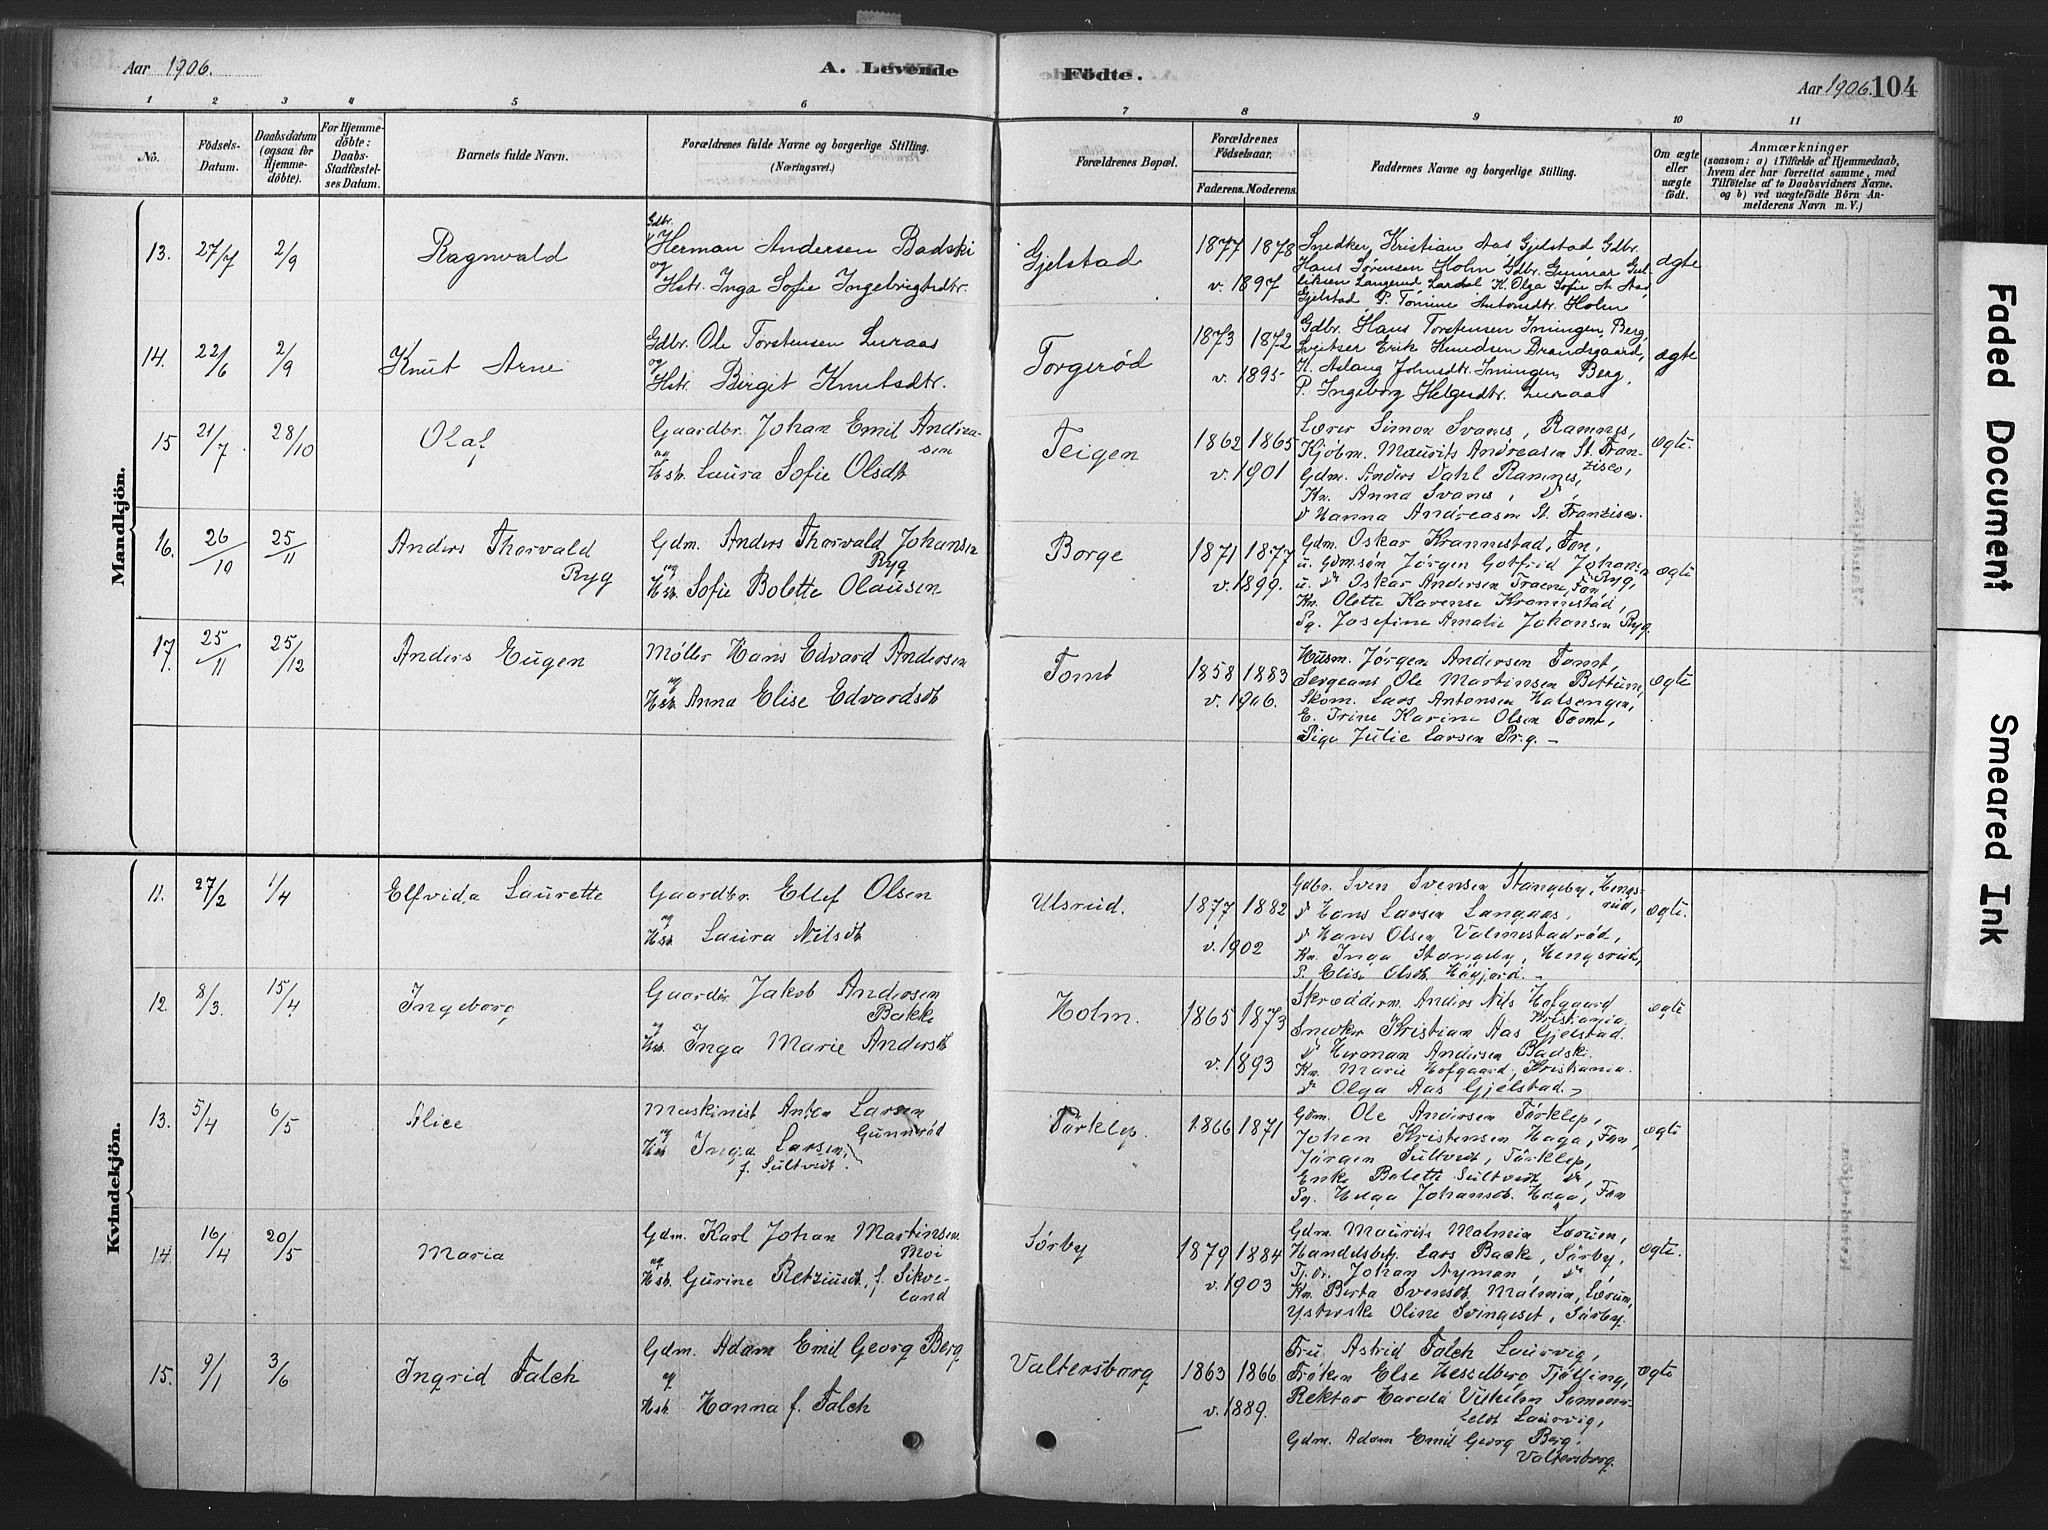 Aar 1906.
A. Levende
Födte.
Aar 1906.
104
1 2 3 4 5 6 7 8 9 10 11
No.
Födsels-
Datum.
Daabsdatum
(ogsaa for
Hjemme-
döbte).
For Hjemme-
döbte:
Daabs-
Stadfæstel-
ses Datum.
Barnets fulde Navn.
Forældrenes fulde Navne og borgerlige Stilling.
(Næringsvei.)
Forældrenes Bopæl.
Forældrenes
Födselsaar.
Faderens. Moderens.
Faddernes Navne og borgerlige Stilling.
Om ægte
eller
uægte
født.
Anmærkninger
(saasom: a) i Tilfælde af Hjemmedaab,
hvem der har forrettet samme, med
Tilföielse af to Daabsvidners Navne.
og b) ved uægtefödte Börn An-
melderens Navn m. V.)
Mandkjön.
13. 27/7 2/9 Ragnvald
Gdbr.
Herman Andersen Badski
og
Hstr. Inga Sofie Ingebrigtsdtr.
Gjelstad
1877 1878
v. 1897
Snedker Kristian Aas Gjelstad Gdbr.
Hans Sörensen Holm Gdbr. Gunnar Gul-
liksen Langerud Lardal K. Olga Sofie A. Aas
Gjelstad P. Tomine Antonsdtr. Holm
ægte
14. 22/6 2/9 Knut Arne
Gdbr. Ole Torstensen Luraas
og
Hstr. Birgit Knutsdtr.
Torgeröd
1873 1872
v. 1895
Gdbr. Hans Torstensen Imingen, Berg,
Sveitser Erik Knudsen Brandsgaard,
K. Aslaug Johnsdtr. Imingen, Berg,
P. Ingeborg Helgesdtr. Luraas
ægte
15 21/7 28/10 Olaf
Gaardbr. Johan Emil Andrea-
sen
og
Hstr. Laura Sofie Olsdt
Teigen
1862 1865
v. 1901
Lærer Simon Svanes, Ramnes,
Kjöbm. Maurits Andreasen St. Fran-
zisco,
Gdm. Anders Dahl Ramnes,
Kn. Anna Svanes, do,
do Hanna Andreasen St. Franzisco.
ægte.
16. 26/10 25/11 Anders Thorvald
Ryg
Gdm. Anders Thorvald Johansen
Ryg
og
Hstr. Sofie Bolette Olausen
Borge
1871 1877
v. 1899.
Gdm. Oskar Krannestad, Fon,
u. Gdm.sön Jörgen Gotfrid Johansen
Ryg,
u. do Oskar Andersen Traene, Fon
Kn. Olette Karense Krannestad,
Pg. Josefine Amalie Johansen Ryg.
ægte
17. 25/11 25/12 Anders Eugen
Møller Hans Edvard Andersen
og
Hstr. Anna Elise Edvardsdt
Tomt
1858 1883
v. 1906.
Husm. Jörgen Andersen Tomt,
Sergeant Ole Martinsen Bettum,
Skom. Lars Antonsen Halsengen,
E. Trine Karine Olsen Tomt,
Pige Julie Larsen Pr.g.
ægte
Kvindekjön.
11. 27/2 1/4 Elfvida Laurette
Gaardbr. Ellef Olsen
og
Hstr. Laura Nilsdt
Ulsrud.
1877 1882
v. 1902
Gdbr. Sven Svensen Stangeby, Hengs-
rud,
do Hans Larsen Langaas,
do Hans Olsen Valmestadröd,
Kn. Inga Stangeby, Hengsrud,
P. Elise Olsdt. Högjord.
ægte.
12. 8/3 15/4 Ingeborg
Gaardbr. Jakob Andersen
Bakke
og
Hstr. Inga Marie Andersdt
Holm.
1865 1873
v. 1893
Skrædderm. Anders Nils Hofgaard
Kristiania.
Snedker Kristian Aas Gjelstad.
do Herman Andersen Badski.
Kn. Marie Hofgaard, Kristiania.
do Olga Aas Gjelstad.
ægte
13. 5/4 6/5 Alice
Maskinist Anton Larsen
Gunneröd
og
Hstr. Inga Larsen,
f. Sultvedt.
Törklep.
1866 1871
Gdm. Ole Andersen Törklep,
Johan Kristensen Haga, Fon,
Jörgen Sultvedt, Törklep,
Enke Bolette Sultvedt do,
Pg. Helga Johansdt. Haga, Fon
ægte
14. 16/4 20/5 Maria
Gdm. Karl Johan Martinsen
Moi
og
Hstr. Gurine Retziusdt. f. Sikve-
land
Sørby
1879 1884
v. 1903
Gdm. Maurits Malmin Lorum,
Handelsbf. Lars Backe, Sörby,
Tj.dr. Johan Nyman, do,
Kn. Berta Svensdt. Malmin, Lorum,
Ysterske Oline Svingeset, Sörby.
ægte.
15. 9/1 3/6 Ingrid Falch
Gdm. Adam Emil Georg Berg
og
Hstr. Hanna f. Falch
Valtersborg
1863 1866
v. 1889.
Fru Astrid Falch Laurvig,
Fröken Else Hesselberg Tjölling,
Rektor Harald Vilhelm Sommer-
feldt Laurvig,
Gdm. Adam Emil Georg Berg,
Valtersborg.
ægte
Faded Document
Smeared Ink